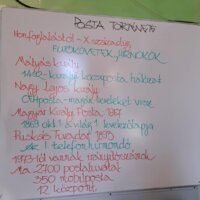 POSTA TÖRTÉNETE
Honfoglalástól - X. századig
FUTÓKÖVETEK, HÍRNÖKÖK
Mátyás király
királyi kocsiposta hálózat
Nagy Lajos király
Magyar Királyi Posta, 1867
1869 okt. 1. a világ 1. levelezőlapja
Puskás Tivadar 1893
az 1. telefonhírmondó
1973-tól vannak irányítószámok
Ma 2700 postahivatal
350 mobilposta
12 központ